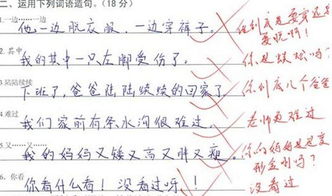 二、运用下列词语造句。(18分)
1.一边……一边……
他一边脱衣服，一边穿裤子。
他到底是要穿还是要脱啊！
2.其中
我的其中一只左脚受伤了。
你是蜈蚣吗？
3.陆陆续续
下班了，爸爸陆陆续续的回家了。
你到底几个爸爸
4.难过
我们家前有条水沟很难过。
老师更难过
5.又……又……
我的妈妈又矮又高又胖又瘦。
你的妈妈是变形金刚吗？
6.你看
你看什么看！没看过呀！
没看过